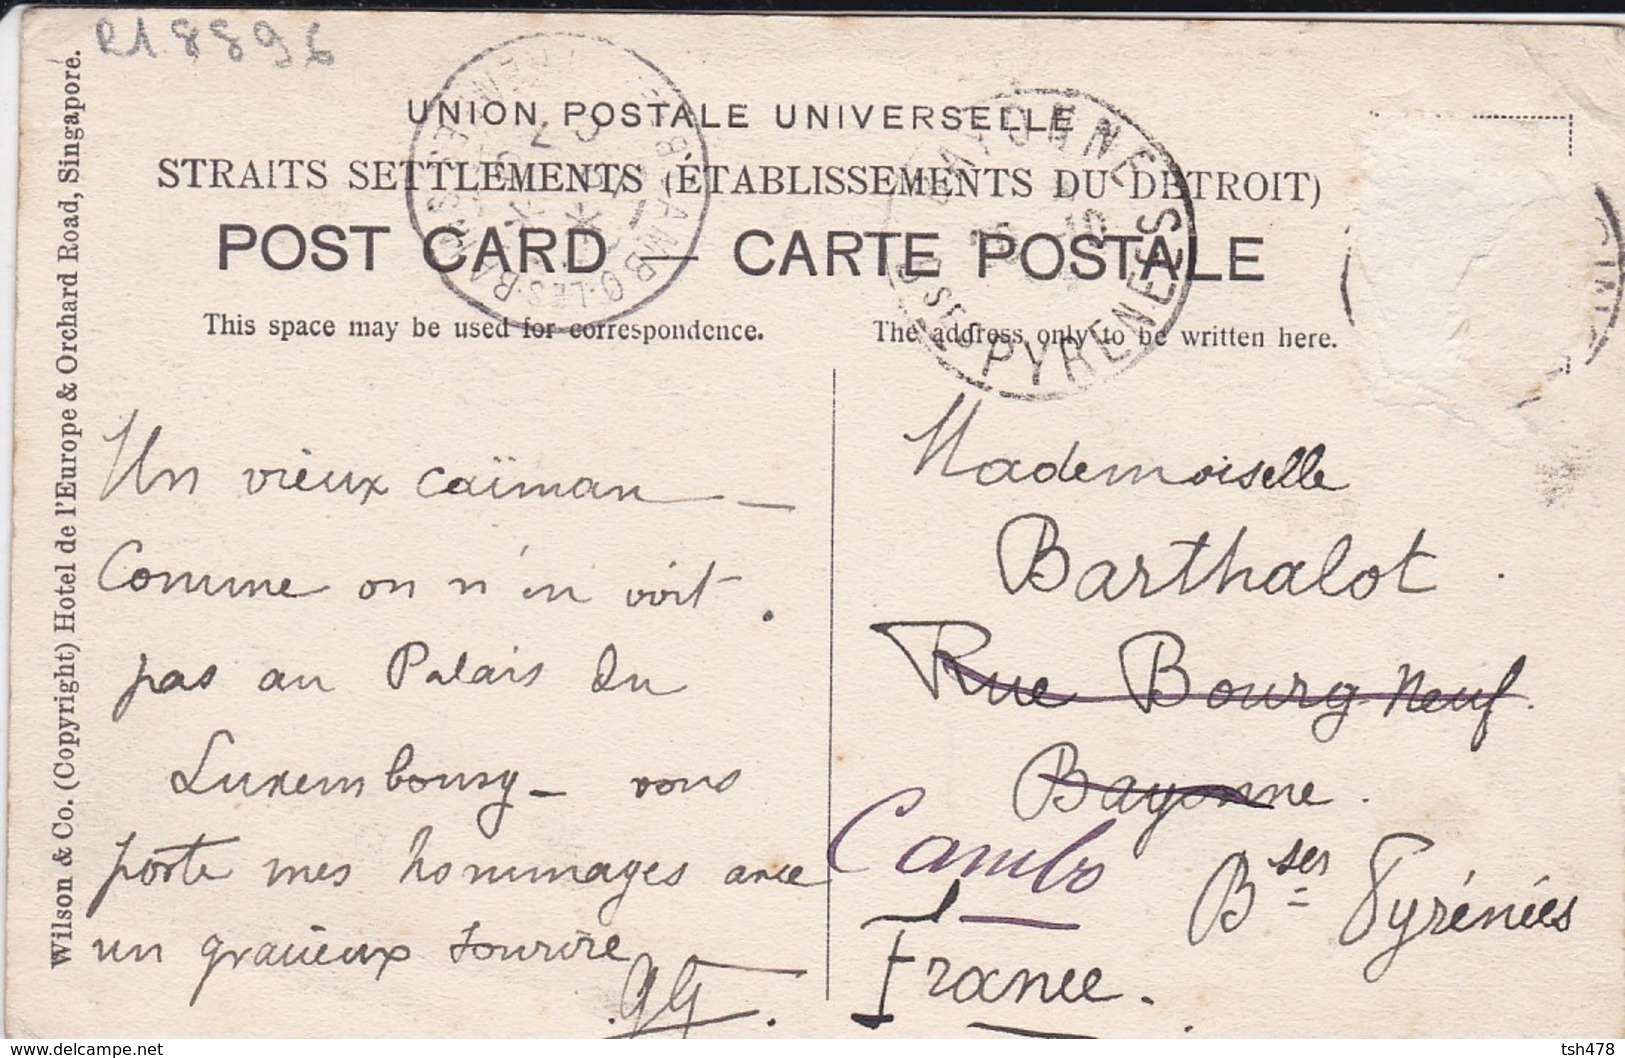 R18896
UNION POSTALE UNIVERSELLE
STRAITS SETTLEMENTS (ÉTABLISSEMENTS DU DÉTROIT)
POST CARD — CARTE POSTALE
This space may be used for correspondence.
The address only to be written here.
Wilson & Co. (Copyright) Hotel de l'Europe & Orchard Road, Singapore.
BAYONNE
BSES PYRENEES
CAMBO-LES-BAINS
Un vieux caïman —
Comme on n'en voit
pas au Palais du
Luxembourg — vous
porte mes hommages avec
un gracieux sourire
GG.
Mademoiselle
Barthalot
Rue Bourg-Neuf
Bayonne.
Cambo
Bses Pyrénées
France.
www.delcampe.net
tsh478